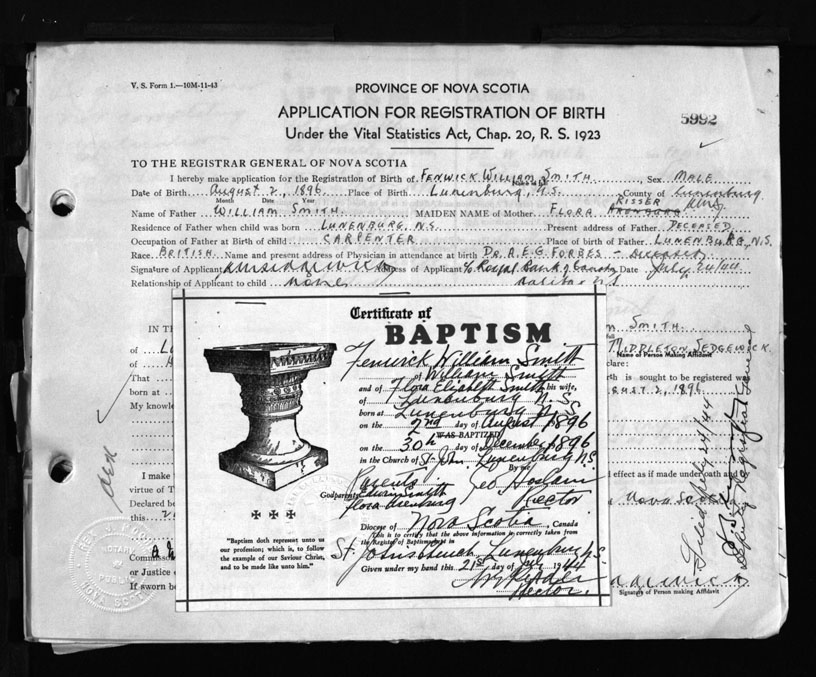 V. S. Form 1.—10M-11-43
PROVINCE OF NOVA SCOTIA
APPLICATION FOR REGISTRATION OF BIRTH
5992
Under the Vital Statistics Act, Chap. 20, R. S. 1923
TO THE REGISTRAR GENERAL OF NOVA SCOTIA
I hereby make application for the Registration of Birth of FENWICK WILLIAM SMITH, Sex MALE
Date of Birth August 2, 1896 Place of Birth Lunenburg, N.S. County of Lunenburg
Month Date Year
RISSER
Name of Father WILLIAM SMITH. MAIDEN NAME of Mother FLORA
Residence of Father when child was born LUNENBURG, N.S. Present address of Father DECEASED
Occupation of Father at Birth of child CARPENTER Place of birth of Father LUNENBURG, N.S.
Race BRITISH. Name and present address of Physician in attendance at birth DR. A. E. G. FORBES - Deceased
Signature of Applicant Address of Applicant c/o Royal Bank of Canada Date July 24/44
Relationship of Applicant to child none Halifax N.S
IN TH
SMITH.
of L
MIDDLETON SEDGEWICK.
Name of Person Making Affidavit
of
clare:
That
rth is sought to be registered was
born at
gust 2, 1896
My knowle
I make
l effect as if made under oath and
virtue of T
Declared be
Nova Sco
this 2
Commiss
or Justice o
If sworn be
Signature of Person making Affidavit
NOTARY
PUBLIC
NOVA SCOTIA
Certificate of
BAPTISM
Fenwick William Smith
of William Smith
and of Flora Elizabeth Smith his wife,
of Lunenburg N. S.
born at Lunenburg N. S.
on the 2nd day of August 1896
WAS BAPTIZED
on the 30th day of December 1896
in the Church of St. John Lunenburg N.S.
By me
Parents Geo Haslam
Godparents Edwin Smith Rector
Flora Arenburg
Diocese of Nova Scotia, Canada
This is to certify that the above information is correctly taken from
the Register of Baptisms kept in
St. John's Church, Lunenburg N.S.
Given under my hand this 21st day of July 1944
Rector.
"Baptism doth represent unto us
our profession; which is, to follow
the example of our Saviour Christ,
and to be made like unto him."
Filed July 24/44
Deputy Registrar General